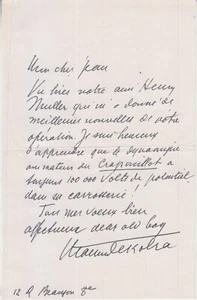 Mon cher Jean
Vu hier notre ami Henry
Muller qui m'a donné de
meilleures nouvelles de votre
opération. Je suis heureux
d'apprendre que le dynamique
animateur du Crapouillot a
toujours 100 000 Volts de potentiel
dans sa carrosserie !
Tous mes voeux bien
affectueux dear old boy
Maurice Dekobra
12 R